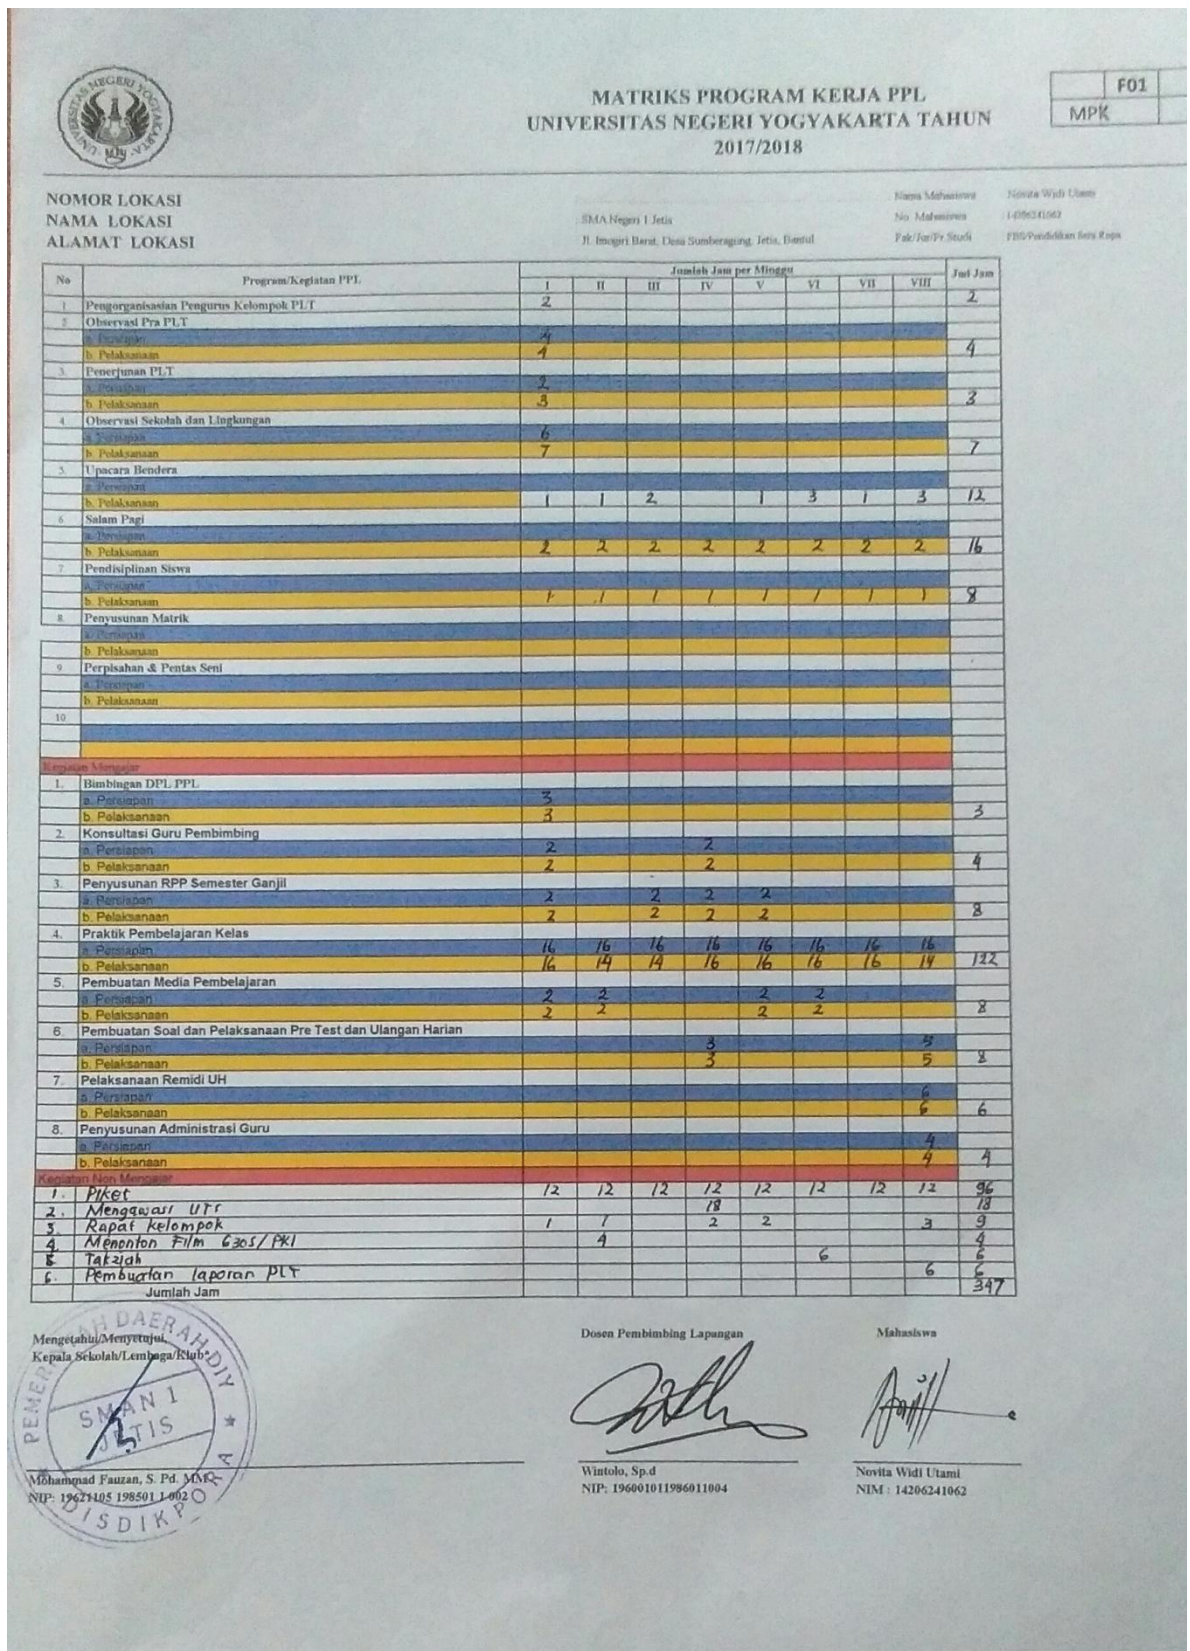 UNIVERSITAS NEGERI YOGYAKARTA
UNY
MATRIKS PROGRAM KERJA PPL
UNIVERSITAS NEGERI YOGYAKARTA TAHUN
2017/2018
F01
MPK
NOMOR LOKASI
NAMA LOKASI
ALAMAT LOKASI
SMA Negeri 1 Jetis
Jl. Imogiri Barat, Desa Sumberagung, Jetis, Bantul
Nama Mahasiswa Novita Widi Utami
No. Mahasiswa 14206241062
Fak/Jur/Pr.Studi FBS/Pendidikan Seni Rupa
No Program/Kegiatan PPL Jumlah Jam per Minggu Jml Jam
I II III IV V VI VII VIII
1 Pengorganisasian Pengurus Kelompok PLT 2 2
2 Observasi Pra PLT
a. Persiapan 4
b. Pelaksanaan 4 4
3. Penerjunan PLT
a. Persiapan 2
b. Pelaksanaan 3 3
4 Observasi Sekolah dan Lingkungan
a. Persiapan 6
b. Pelaksanaan 7 7
5. Upacara Bendera
a. Persiapan
b. Pelaksanaan 1 1 2 1 3 1 3 12
6. Salam Pagi
a. Persiapan
b. Pelaksanaan 2 2 2 2 2 2 2 2 16
7. Pendisiplinan Siswa
a. Persiapan
b. Pelaksanaan 1 1 1 1 1 1 1 1 8
8. Penyusunan Matrik
a. Persiapan
b. Pelaksanaan
9 Perpisahan & Pentas Seni
a. Persiapan
b. Pelaksanaan
10
Kegiatan Mengajar
1. Bimbingan DPL PPL
a. Persiapan 3
b. Pelaksanaan 3 3
2. Konsultasi Guru Pembimbing
a. Persiapan 2 2
b. Pelaksanaan 2 2 4
3. Penyusunan RPP Semester Ganjil
a. Persiapan 2 2 2 2
b. Pelaksanaan 2 2 2 2 8
4. Praktik Pembelajaran Kelas
a. Persiapan 16 16 16 16 16 16 16 16
b. Pelaksanaan 16 14 14 16 16 16 16 14 122
5. Pembuatan Media Pembelajaran
a. Persiapan 2 2 2 2
b. Pelaksanaan 2 2 2 2 8
6. Pembuatan Soal dan Pelaksanaan Pre Test dan Ulangan Harian
a. Persiapan 3 5
b. Pelaksanaan 3 5 8
7. Pelaksanaan Remidi UH
a. Persiapan 6
b. Pelaksanaan 6 6
8. Penyusunan Administrasi Guru
a. Persiapan 4
b. Pelaksanaan 4 4
Kegiatan Non Mengajar
1. Piket 12 12 12 12 12 12 12 12 96
2. Mengawasi UTS 18 18
3. Rapat kelompok 1 1 2 2 3 9
4. Menonton Film G30S/PKI 4 4
5. Takziah 6 6
6. Pembuatan laporan PLT 6 6
Jumlah Jam 347
Mengetahui/Menyetujui,
Kepala Sekolah/Lembaga/Klub*
Dosen Pembimbing Lapangan
Mahasiswa
PEMERINTAH DAERAH DIY
SMAN 1
JETIS
DISDIKPORA
Mohammad Fauzan, S. Pd. MM
NIP: 19621105 198501 1 002
Wintolo, Sp.d
NIP: 196001011986011004
Novita Widi Utami
NIM : 14206241062